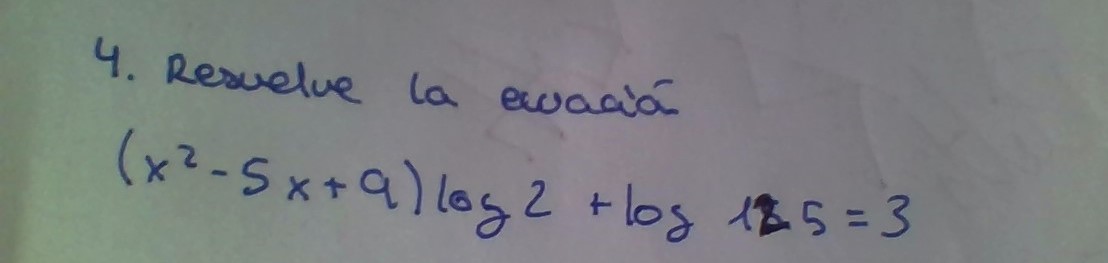 4. Resuelve la ecuació
(x² - 5x + 9) log 2 + log 125 = 3